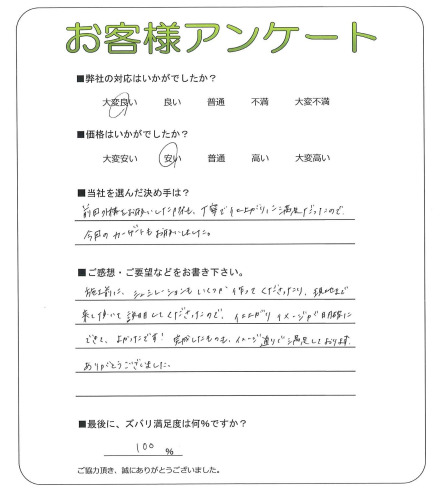 お客様アンケート
■弊社の対応はいかがでしたか?
大変良い 良い 普通 不満 大変不満
■価格はいかがでしたか?
大変安い 安い 普通 高い 大変高い
■当社を選んだ決め手は?
前回外構をお願いした時も、丁寧で仕上がりに満足だったので
今回のカーゲートもお願いしました。
■ご感想・ご要望などをお書き下さい。
施工前に、シュミレーションもいくつか作ってくださったり、現地まで
来て頂いて説明してくださったので、仕上がりイメージが明確に
できて、よかったです! 完成したものも、イメージ通りで満足しております。
ありがとうございました。
■最後に、ズバリ満足度は何%ですか?
100 %
ご協力頂き、誠にありがとうございました。